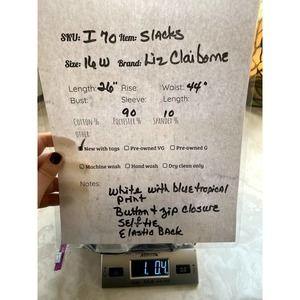 SKU: I 70 Item: Slacks
Size: 16W Brand: Liz Claiborne
Length: 26" Rise: Waist: 44"
Bust: Sleeve: Length:
90 10
COTTON % POLYESTER % SPANDEX %
OTHER:
New with tags Pre-owned VG Pre-owned G
Machine wash Hand wash Dry clean only
Notes: White with blue tropical
print
Button + zip closure
Self tie
Elastic Back
1 0.4